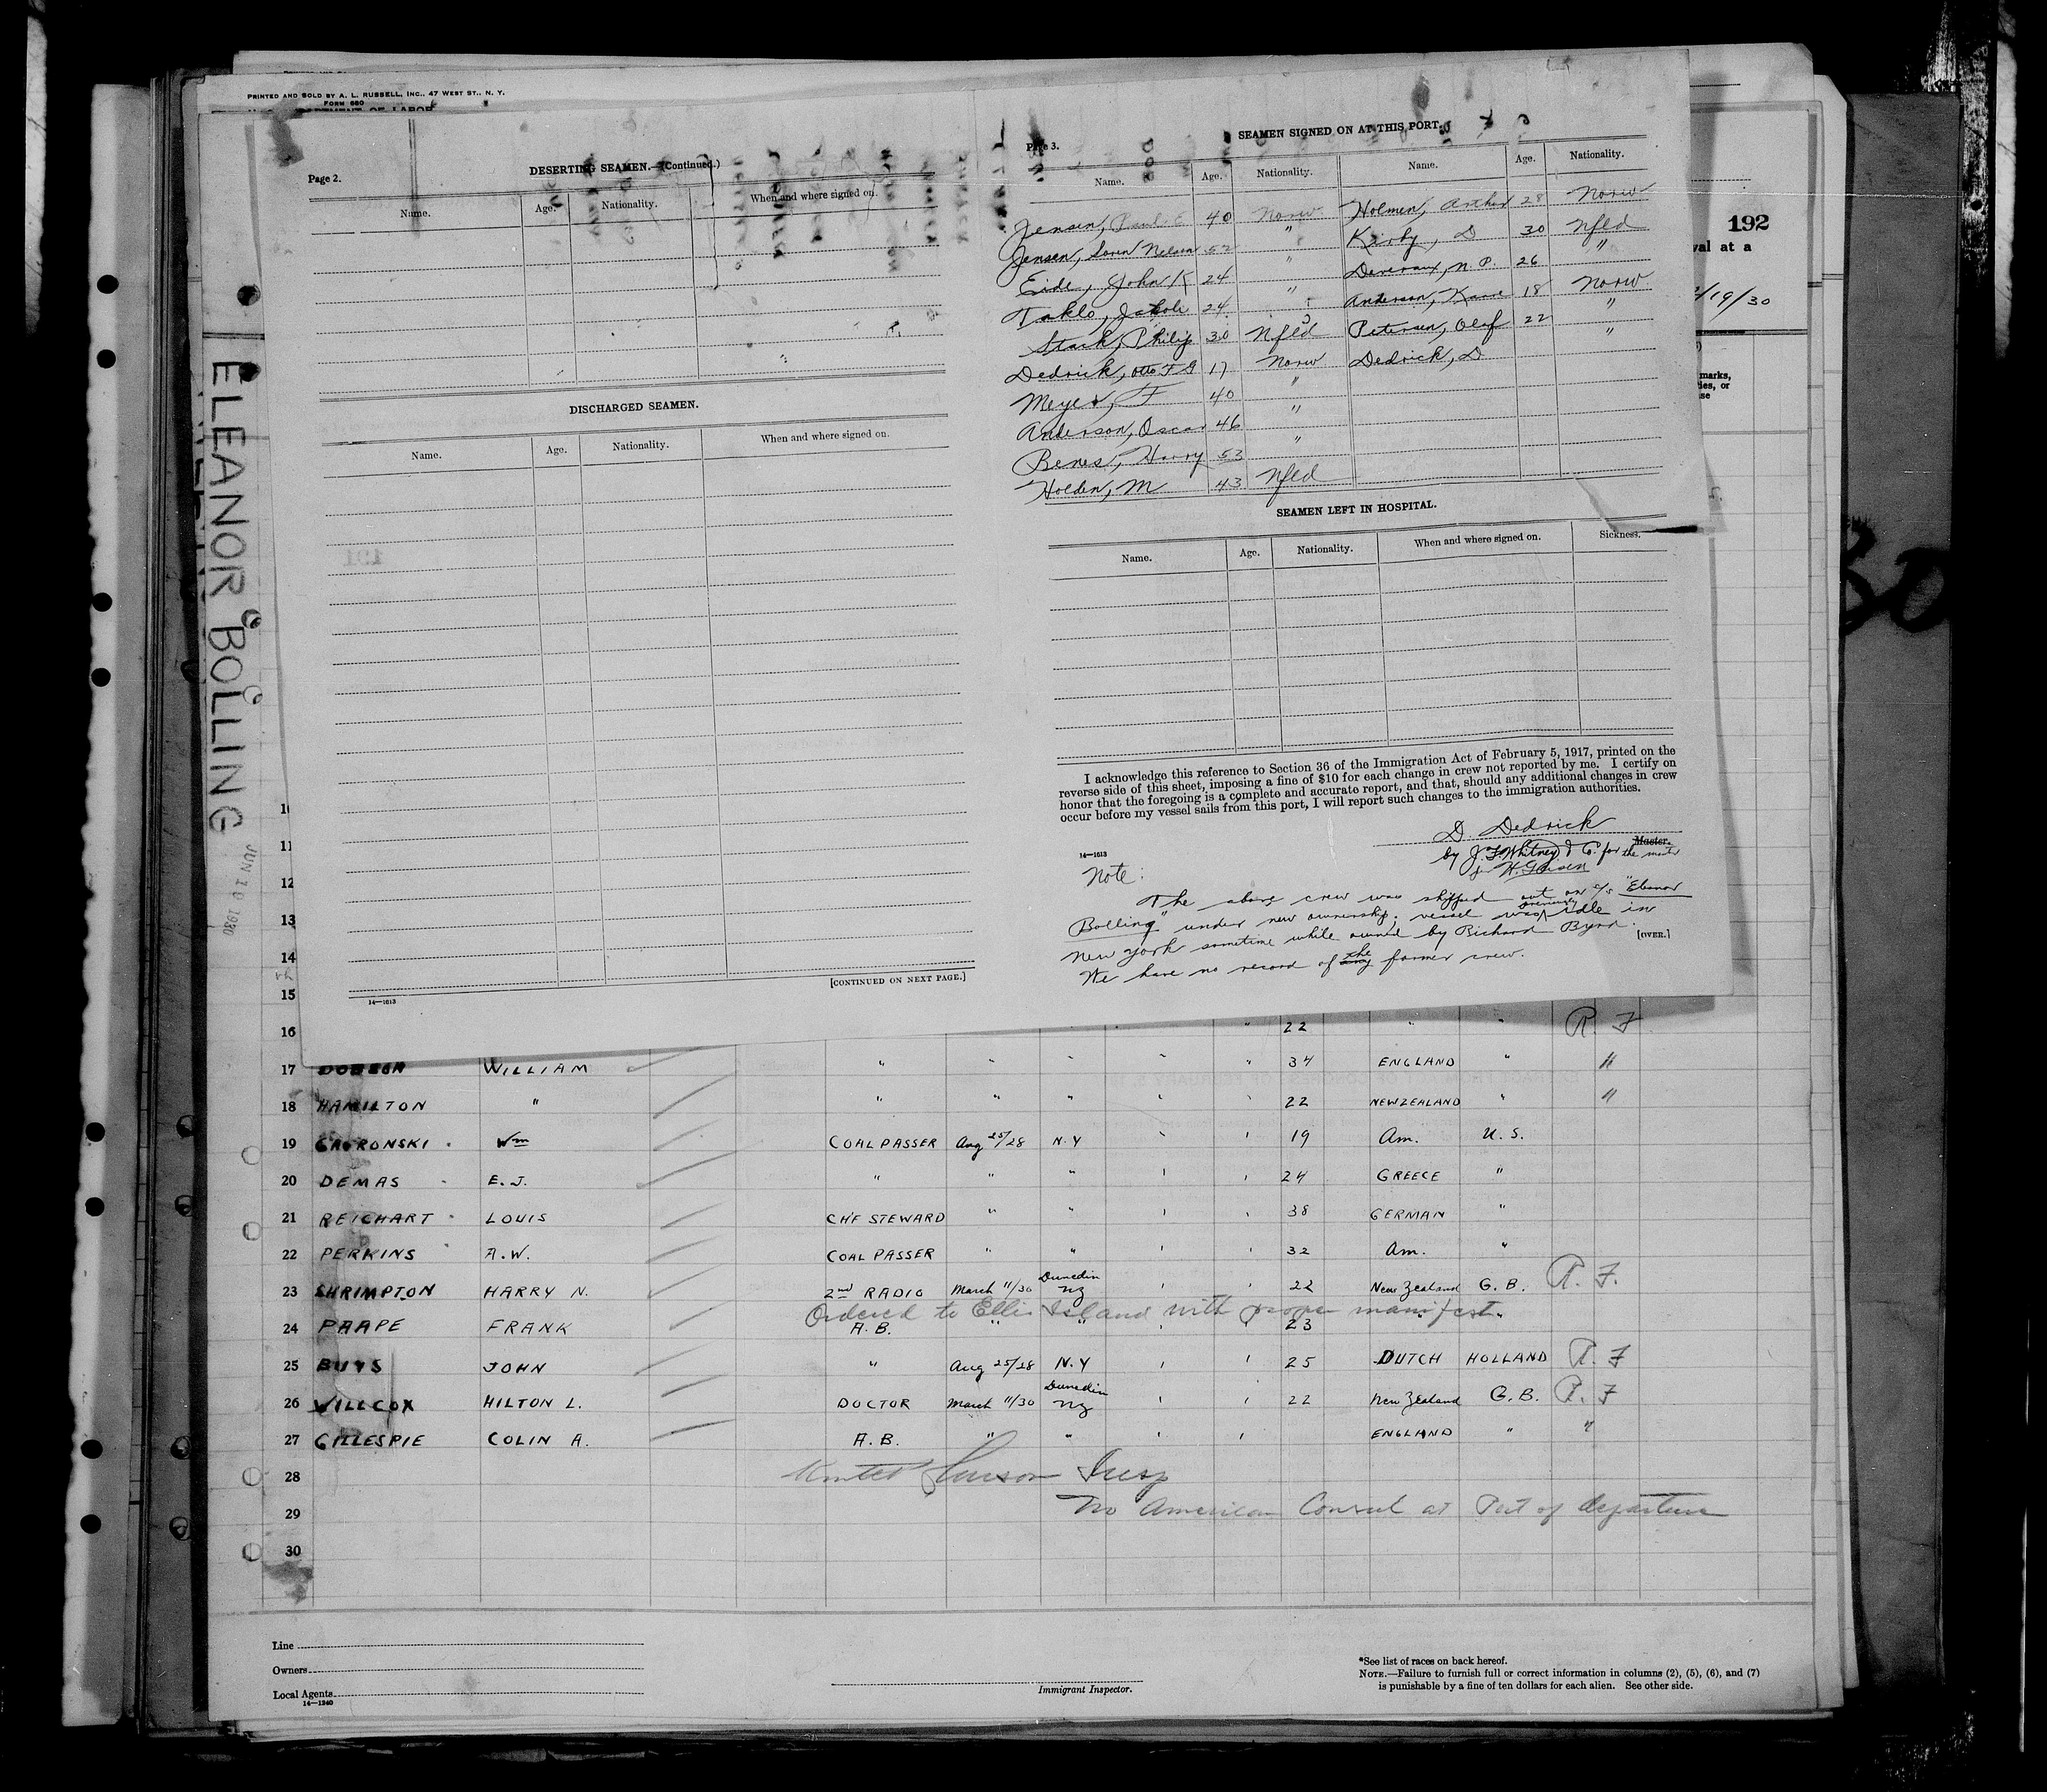 PRINTED AND SOLD BY A. L. RUSSELL, INC., 47 WEST ST., N. Y.
FORM 680
Page 2.
DESERTING SEAMEN.—(Continued.)
Name. Age. Nationality. When and where signed on.
DISCHARGED SEAMEN.
Name. Age. Nationality. When and where signed on.
[CONTINUED ON NEXT PAGE.]
14—1613
Page 3.
SEAMEN SIGNED ON AT THIS PORT.
Name. Age. Nationality. Name. Age. Nationality.
Jensen, Paul E 40 Norw Holmen, Arthur 28 Norw
Jensen, Soren Nelson 52 " Kirby, D 30 Nfld
Eide, John K 24 " Devereaux, N. P. 26 "
Taklo, Jakob 24 " Anderson, Kaare 18 Norw
Stark, Philip 30 Nfld Petersen, Olaf 22 "
Dedrick, Otto F G 17 Norw Dedrick, D "
Meyer, F 40 "
Anderson, Oscar 46 "
Benes, Harry 53 "
Holden, M 43 Nfld
SEAMEN LEFT IN HOSPITAL.
Name. Age. Nationality. When and where signed on. Sickness.
I acknowledge this reference to Section 36 of the Immigration Act of February 5, 1917, printed on the
reverse side of this sheet, imposing a fine of $10 for each change in crew not reported by me. I certify on
honor that the foregoing is a complete and accurate report, and that, should any additional changes in crew
occur before my vessel sails from this port, I will report such changes to the immigration authorities.
D. Dedrick
Master.
by J. F. Whitney & Co. for the master
14—1613
Note:
The above crew was shipped out on s/s "Eleanor
Bolling" under new ownership; vessel was previously idle in
New York sometime while owned by Richard Byrd.
We have no record of the former crew.
[OVER.]
192
val at a
/19/30
marks,
ies, or
se
30
ELEANOR "BOLLING
JUN 20 1930
10
11
12
13
14
15
16 " 22 " " R F
17 DOBSON WILLIAM " " " " " 34 ENGLAND " "
18 HAMILTON " " " " " " 22 NEW ZEALAND " "
19 GAVRONSKI Wm COAL PASSER Aug 25/28 N.Y " " 19 Am. U.S.
20 DEMAS E.J. " " " " " 24 GREECE "
21 REICHART LOUIS CHF STEWARD " " " " 38 GERMAN "
22 PERKINS A.W. COAL PASSER " " " " 32 Am. "
23 SHRIMPTON HARRY N. 2nd RADIO March 11/30 Dunedin NZ " " 22 New Zealand G.B. R. F.
Ordered to Ellis Island with proper manifest.
24 PAAPE FRANK A.B. " " " " 23 " "
25 BUYS JOHN " Aug 25/28 N.Y " " 25 DUTCH HOLLAND R. F
26 WILLCOX HILTON L. DOCTOR March 11/30 Dunedin NZ " " 22 New Zealand G.B. R. F
27 GILLESPIE COLIN A. A.B. " " " " ENGLAND " "
28 Insp
29 No American Consul at Port of departure
30
Line
Owners
Local Agents
14—1240
Immigrant Inspector.
*See list of races on back hereof.
NOTE.—Failure to furnish full or correct information in columns (2), (5), (6), and (7)
is punishable by a fine of ten dollars for each alien. See other side.